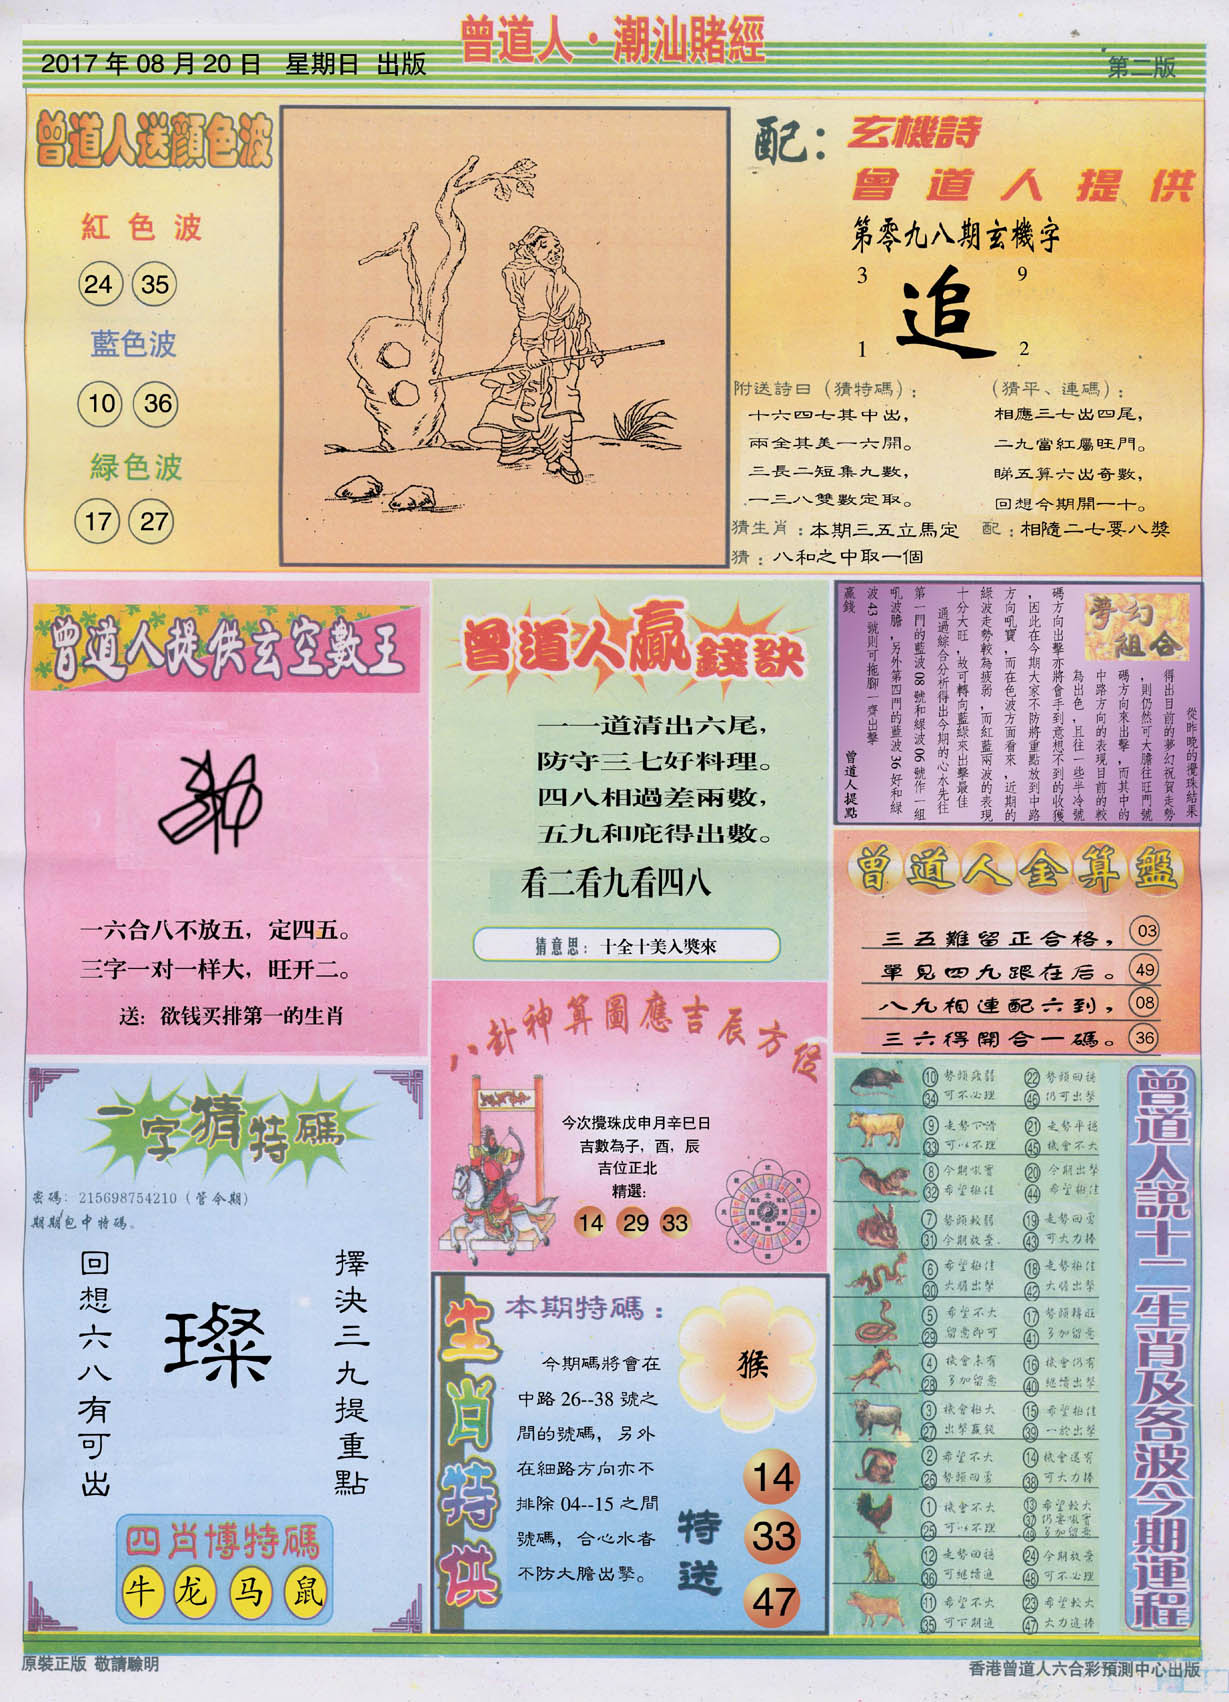 曾道人·潮汕賭經
2017 年 08 月 20 日 星期日 出版
第二版
曾道人送顏色波
紅色波
24 35
藍色波
10 36
緑色波
17 27
配：玄機詩
曾道人提供
第零九八期玄機字
3 9
追
1 2
附送詩曰（猜特碼）：
十六四七其中出，
兩全其美一六開。
三長二短集九數，
一三八雙數定取。
（猜平、連碼）：
相應三七出四尾，
二九當紅屬旺門。
睇五算六出奇數，
回想今期開一十。
猜生肖：本期三五立馬定 配：相隨二七要八獎
猜：八和之中取一個
曾道人提供玄空數王
一六合八不放五，定四五。
三字一对一样大，旺开二。
送：欲钱买排第一的生肖
曾道人贏錢訣
一一道清出六尾，
防守三七好料理。
四八相過差兩數，
五九和庇得出數。
看二看九看四八
猜意思：十全十美入獎來
夢幻
組合
從昨晚的攪珠結果
得出目前的夢幻祝賀走勢
，則仍然可大膽往旺門號
碼方向來出擊，而其中的
中路方向的表現目前的較
為出色，且往一些半冷號
碼方向出擊亦將會手到意想不到的收獲
，因此在今期大家不防將重點放到中路
方向吼寶，而在色波方面看來，近期的
綠波走勢較為疲弱，而紅藍兩波的表現
十分大旺，故可轉向藍綠來出擊最佳
通過綜合分析得出今期的心水先往
第一門的藍波 08 號和綠波 06 號作一組
吼波膽，另外第四門的藍波 36 好和綠
波 43 號則可拖腳一齊出擊
贏錢
曾道人提點
曾道人金算盤
三五難留正合格， 03
單見四九跟在后。 49
八九相連配六到， 08
三六得開合一碼。 36
八卦神算圖應吉辰方位
今次攪珠戊申月辛巳日
吉數為子，酉，辰
吉位正北
精選：
14 29 33
一字猜特碼
密碼：215698754210（管令期）
期期包中特碼。
擇決三九提重點
璨
回想六八有可出
四肖博特碼
牛 龙 马 鼠
生肖特供
本期特碼：
今期碼將會在
中路 26--38 號之
間的號碼，另外
在細路方向亦不
排除 04--15 之間
號碼，合心水者
不防大膽出擊。
猴
特送
14
33
47
曾道人說十二生肖及各波今期運程
10 勢頭疲弱 22 勢頭回穩
34 可不必理 46 仍可出擊
9 走勢下滑 21 走勢平穩
33 可以不理 45 機會不大
8 今期吼寶 20 今期出擊
32 希望極佳 44 希望極佳
7 勢頭較弱 19 走勢回勇
31 今期放棄 43 可大力捧
6 希望極佳 18 走勢極佳
30 大膽出擊 42 大膽出擊
5 希望不大 17 勢頭轉旺
29 留意即可 41 多加留意
4 機會未有 16 機會仍有
28 多加留意 40 繼續出擊
3 機會極大 15 希望極佳
27 出擊贏錢 39 一於出擊
2 希望不大 14 機會還有
26 勢頭回勇 38 可大力捧
1 機會不大 13 希望較大
25 可以不理 37 仍要吼寶
49 多加留意
12 走勢回穩 24 今期放棄
36 可繼續追 48 可不必理
11 希望不大 23 希望較大
35 可下期追 47 大力追捧
原裝正版 敬請驗明
香港曾道人六合彩預測中心出版